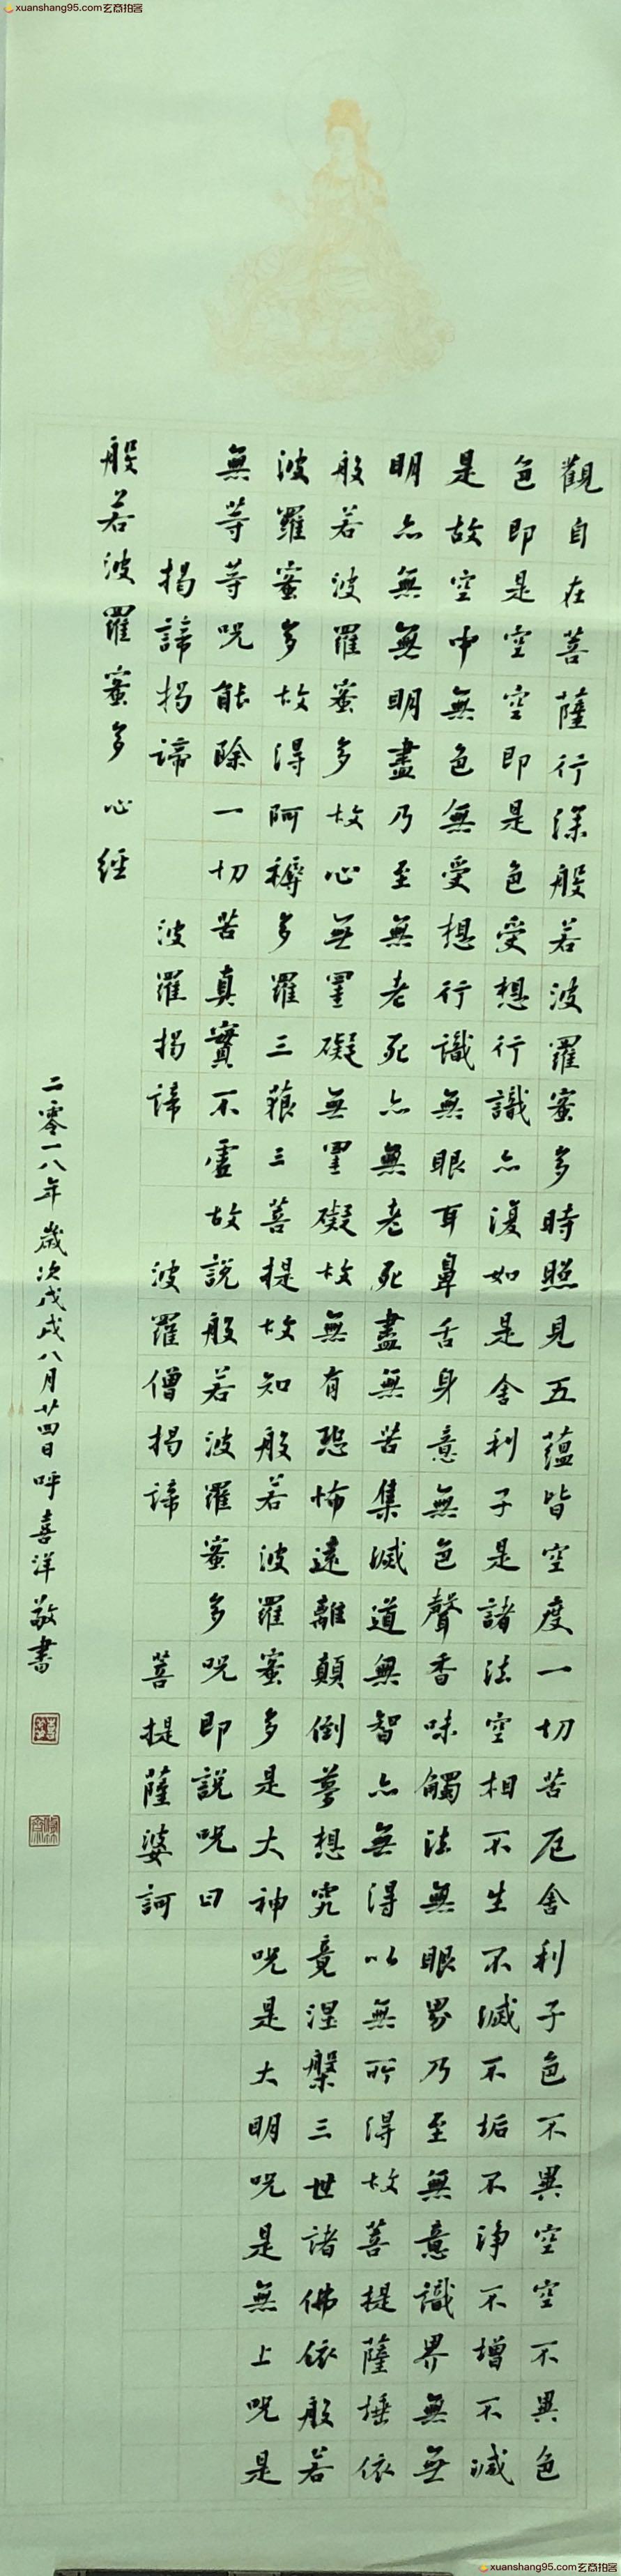 xuanshang95.com玄商拍客
觀自在菩薩行深般若波羅蜜多時照見五蘊皆空度一切苦厄舍利子色不異空空不異色
色即是空空即是色受想行識亦復如是舍利子是諸法空相不生不滅不垢不淨不增不減
是故空中無色無受想行識無眼耳鼻舌身意無色聲香味觸法無眼界乃至無意識界無無
明亦無無明盡乃至無老死亦無老死盡無苦集滅道無智亦無得以無所得故菩提薩埵依
般若波羅蜜多故心無罣礙無罣礙故無有恐怖遠離顛倒夢想究竟涅槃三世諸佛依般若
波羅蜜多故得阿耨多羅三藐三菩提故知般若波羅蜜多是大神咒是大明咒是無上咒是
無等等咒能除一切苦真實不虛故說般若波羅蜜多咒即說咒曰
揭諦揭諦 波羅揭諦 波羅僧揭諦 菩提薩婆訶
般若波羅蜜多心經
二零一八年歲次戊戌八月廿四日呼喜洋敬書
xuanshang95.com玄商拍客